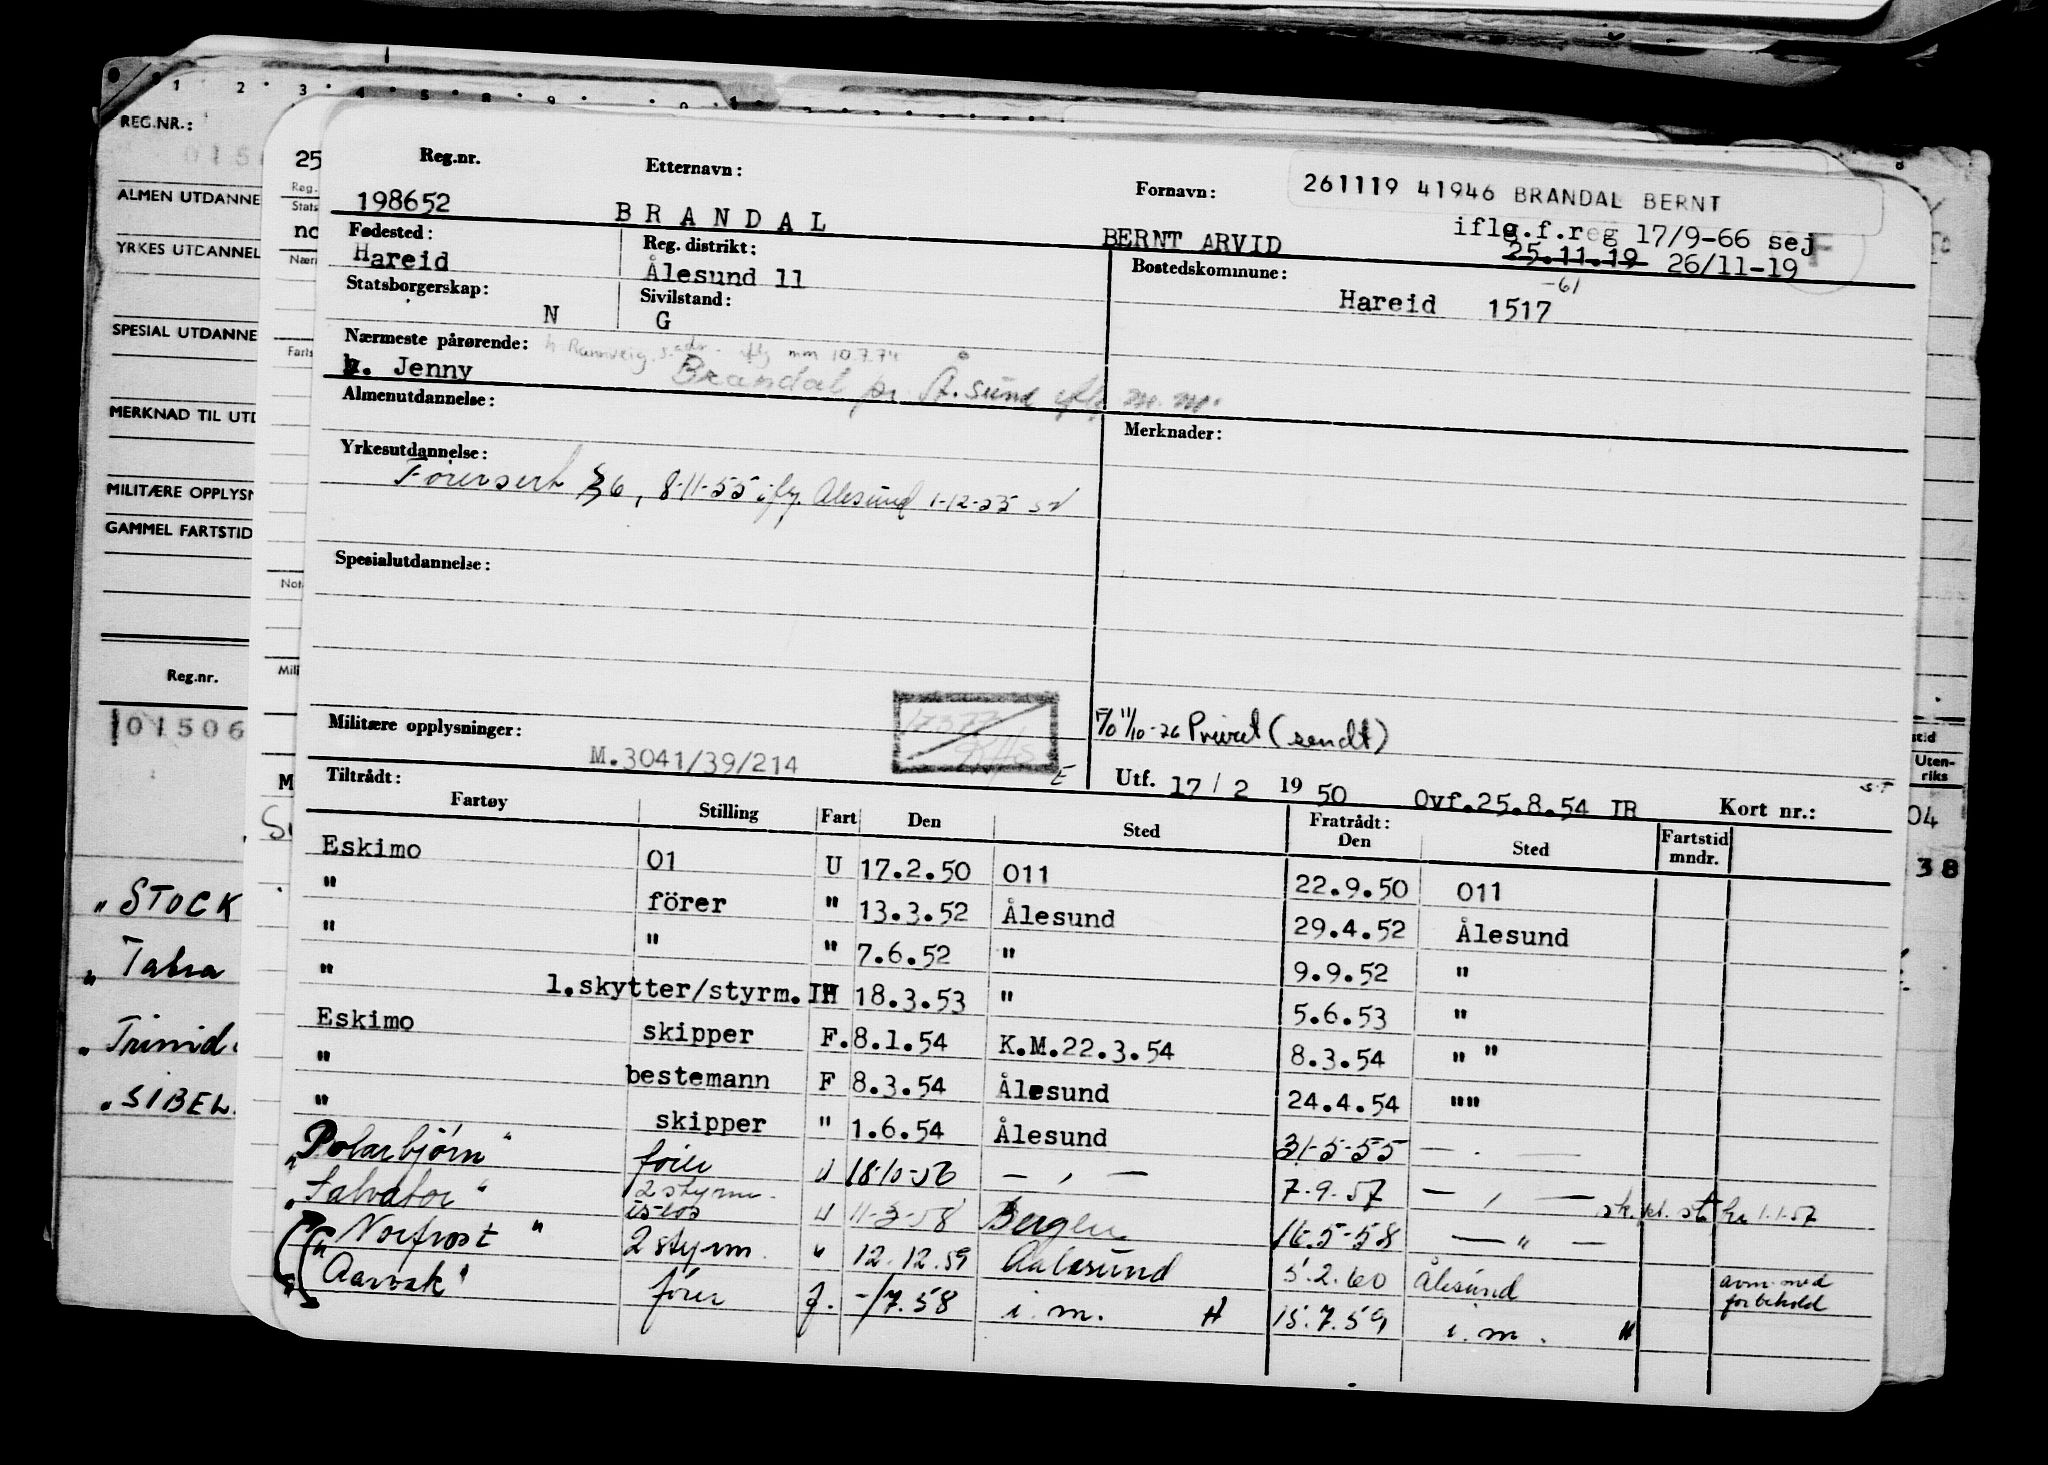 1 2 3 4 5 8 9
REG.NR.:
ALMEN UTDANNE
YRKES UTDANNEL
SPESIAL UTDANNE
MERKNAD TIL UTD
MILITÆRE OPPLYSN
GAMMEL FARTSTID
Reg.nr.
01506
" STOCK
" Tabra
" Trinid
" SIBEL
25
Reg.
Stats
no
Nær
Farts
Not
Mili
M
Reg.nr. Etternavn: Fornavn: 261119 41946 BRANDAL BERNT
198652 BRANDAL BERNT ARVID iflg.f.reg 17/9-66 sej
25.11.19 26/11-19 F
Fødested: Reg. distrikt: Bostedskommune:
Hareid Ålesund 11 -61
Statsborgerskap: Sivilstand: Hareid 1517
N G
Nærmeste pårørende: h Rannveig, s.adr. iflg mm 10.7.74
h. Jenny Brandal pr Å.sund iflg m.m.
Almenutdannelse: Merknader:
Yrkesutdannelse:
Förersert §6, 8-11-55 ifg. Alesund 1-12-55
Spesialutdannelse:
Militære opplysninger: M.3041/39/214
F/o 11/10-26 Privat (sendt)
Utf. 17/2 1950 Ovf.25.8.54 IR Kort nr.:
Tiltrådt: Fratrådt:
Fartøy Stilling Fart Den Sted Den Sted Fartstid mndr.
Eskimo 01 U 17.2.50 011 22.9.50 011
" förer " 13.3.52 Ålesund 29.4.52 Ålesund
" " " 7.6.52 " 9.9.52 "
" 1.skytter/styrm. IH 18.3.53 " 5.6.53 "
Eskimo skipper F. 8.1.54 K.M.22.3.54 8.3.54 " "
" bestemann F 8.3.54 Ålesund 24.4.54 ""
" skipper " 1.6.54 Ålesund 31-5-55 — . —
"Polarbjörn" förer U 18-10-56 — , — 7.9.57 — , — sk. kl. st fra 1.1.57
"Salvator" 2 styrm. is-los U 11-3-58 Bergen 16.5-58 — " —
"Norfrost" 2 styrm. " 12.12.59 Aalesund 5.2.60 Ålesund anm. med forbehold
"Aarvak" förer f. -/7.58 i.m. H 15.7.59 i.m. H
stid
Uten-
riks
04
38